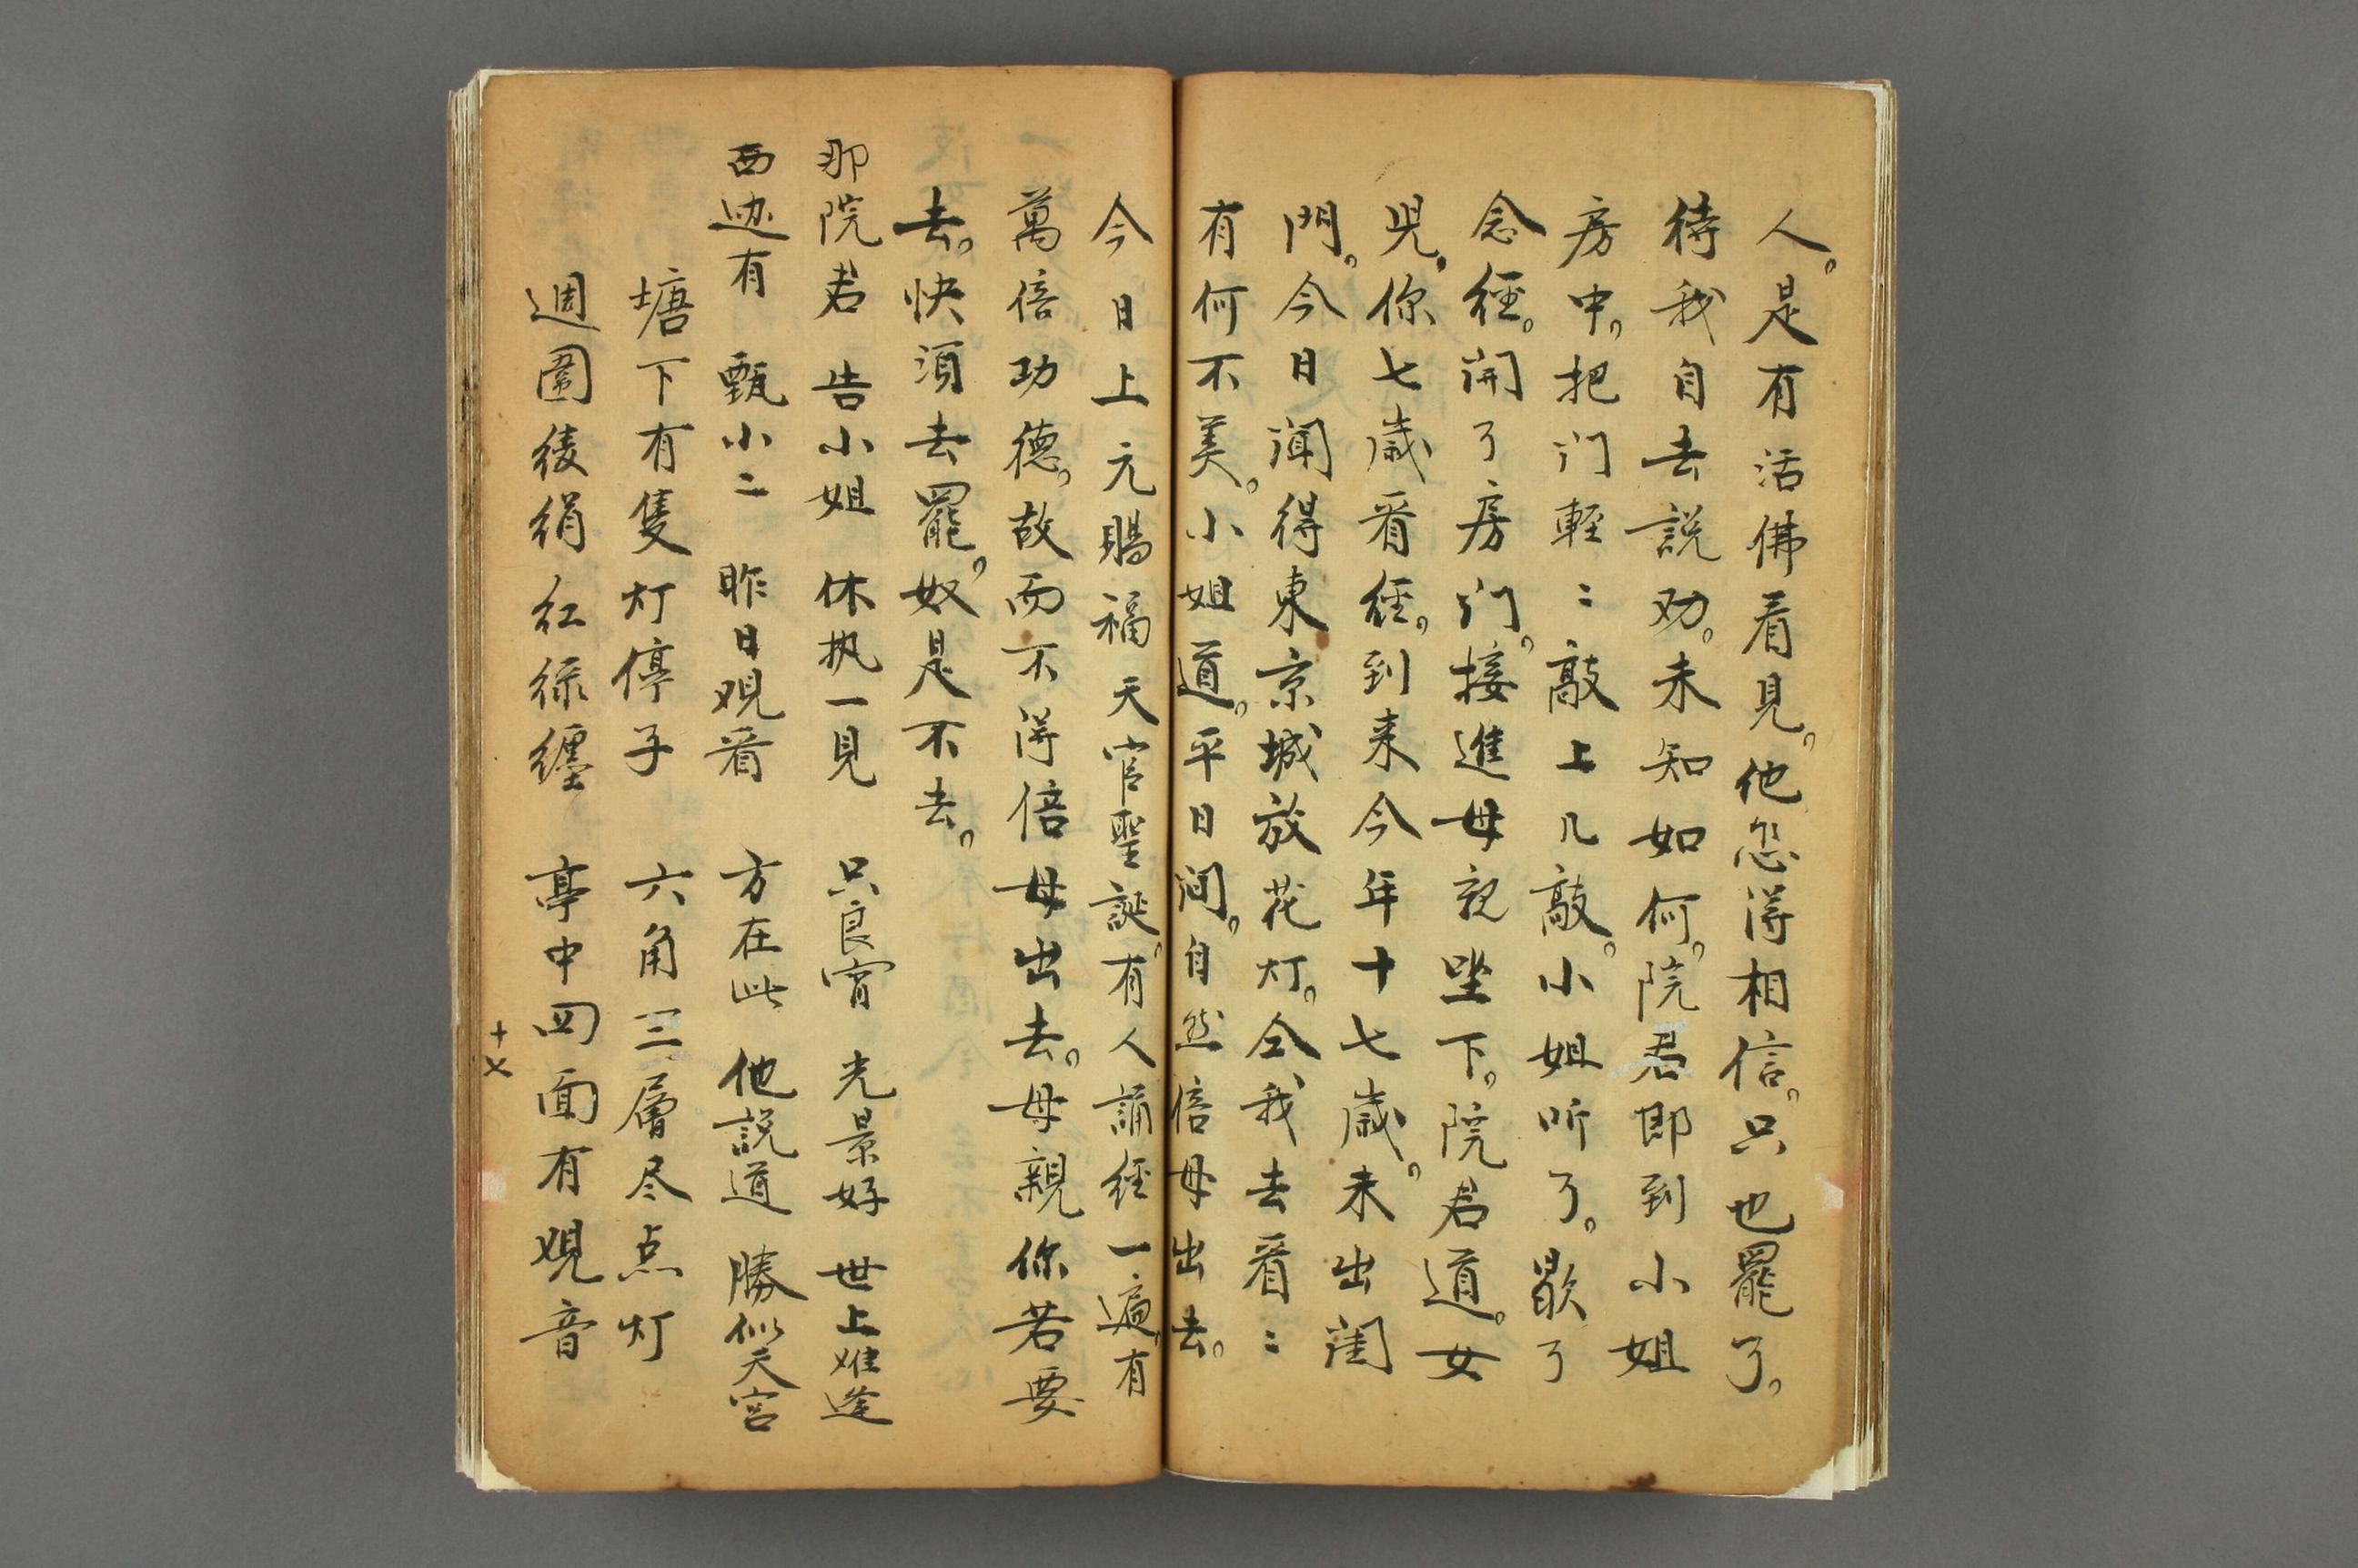 人。是有活佛看見。他怎得相信。只也罷了。
待我自去説劝。未知如何。院君即到小姐
房中。把门輕〻敲上几敲。小姐听了。歇了
念經。開了房门。接進母親坐下。院君道。女
兒。你七歲看經。到来今年十七歲。未出闺
門。今日闻得東京城放花灯。仝我去看〻
有何不美。小姐道。平日间。自然倍母出去。
今日上元賜福天官聖誕。有人誦經一遍。有
萬倍功德。故而不得倍母出去。母親你若要
去。快須去罷。奴是不去。
那院君 告小姐 休执一見 只良宵 光景好 世上难逢
西边有 甄小二 昨日观看 方在此 他説道 勝似天宫
塘下有隻灯停子 六角三層尽点灯
週圍绫绢红绿纏 亭中四面有观音
十乂